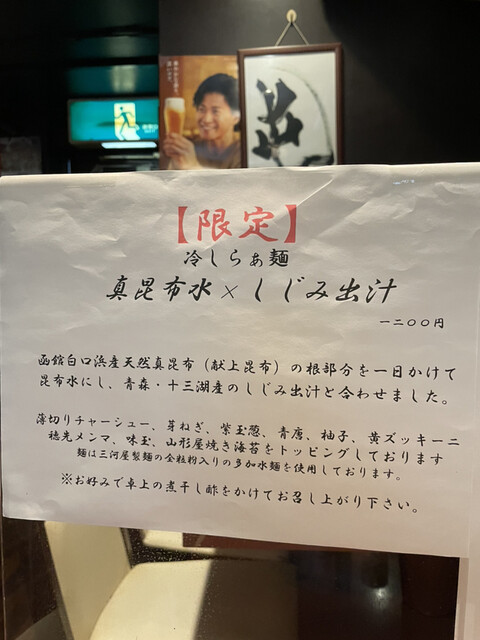 出
【限定】
冷しらぁ麺
真昆布水×しじみ出汁
一二〇〇円
函館白口浜産天然真昆布（献上昆布）の根部分を一日かけて
昆布水にし、青森・十三湖産のしじみ出汁と合わせました。
薄切りチャーシュー、芽ねぎ、紫玉葱、青唐、柚子、黄ズッキーニ
穂先メンマ、味玉、山形屋焼き海苔をトッピングしております
麺は三河屋製麺の全粒粉入りの多加水麺を使用しております。
※お好みで卓上の煮干し酢をかけてお召し上がり下さい。